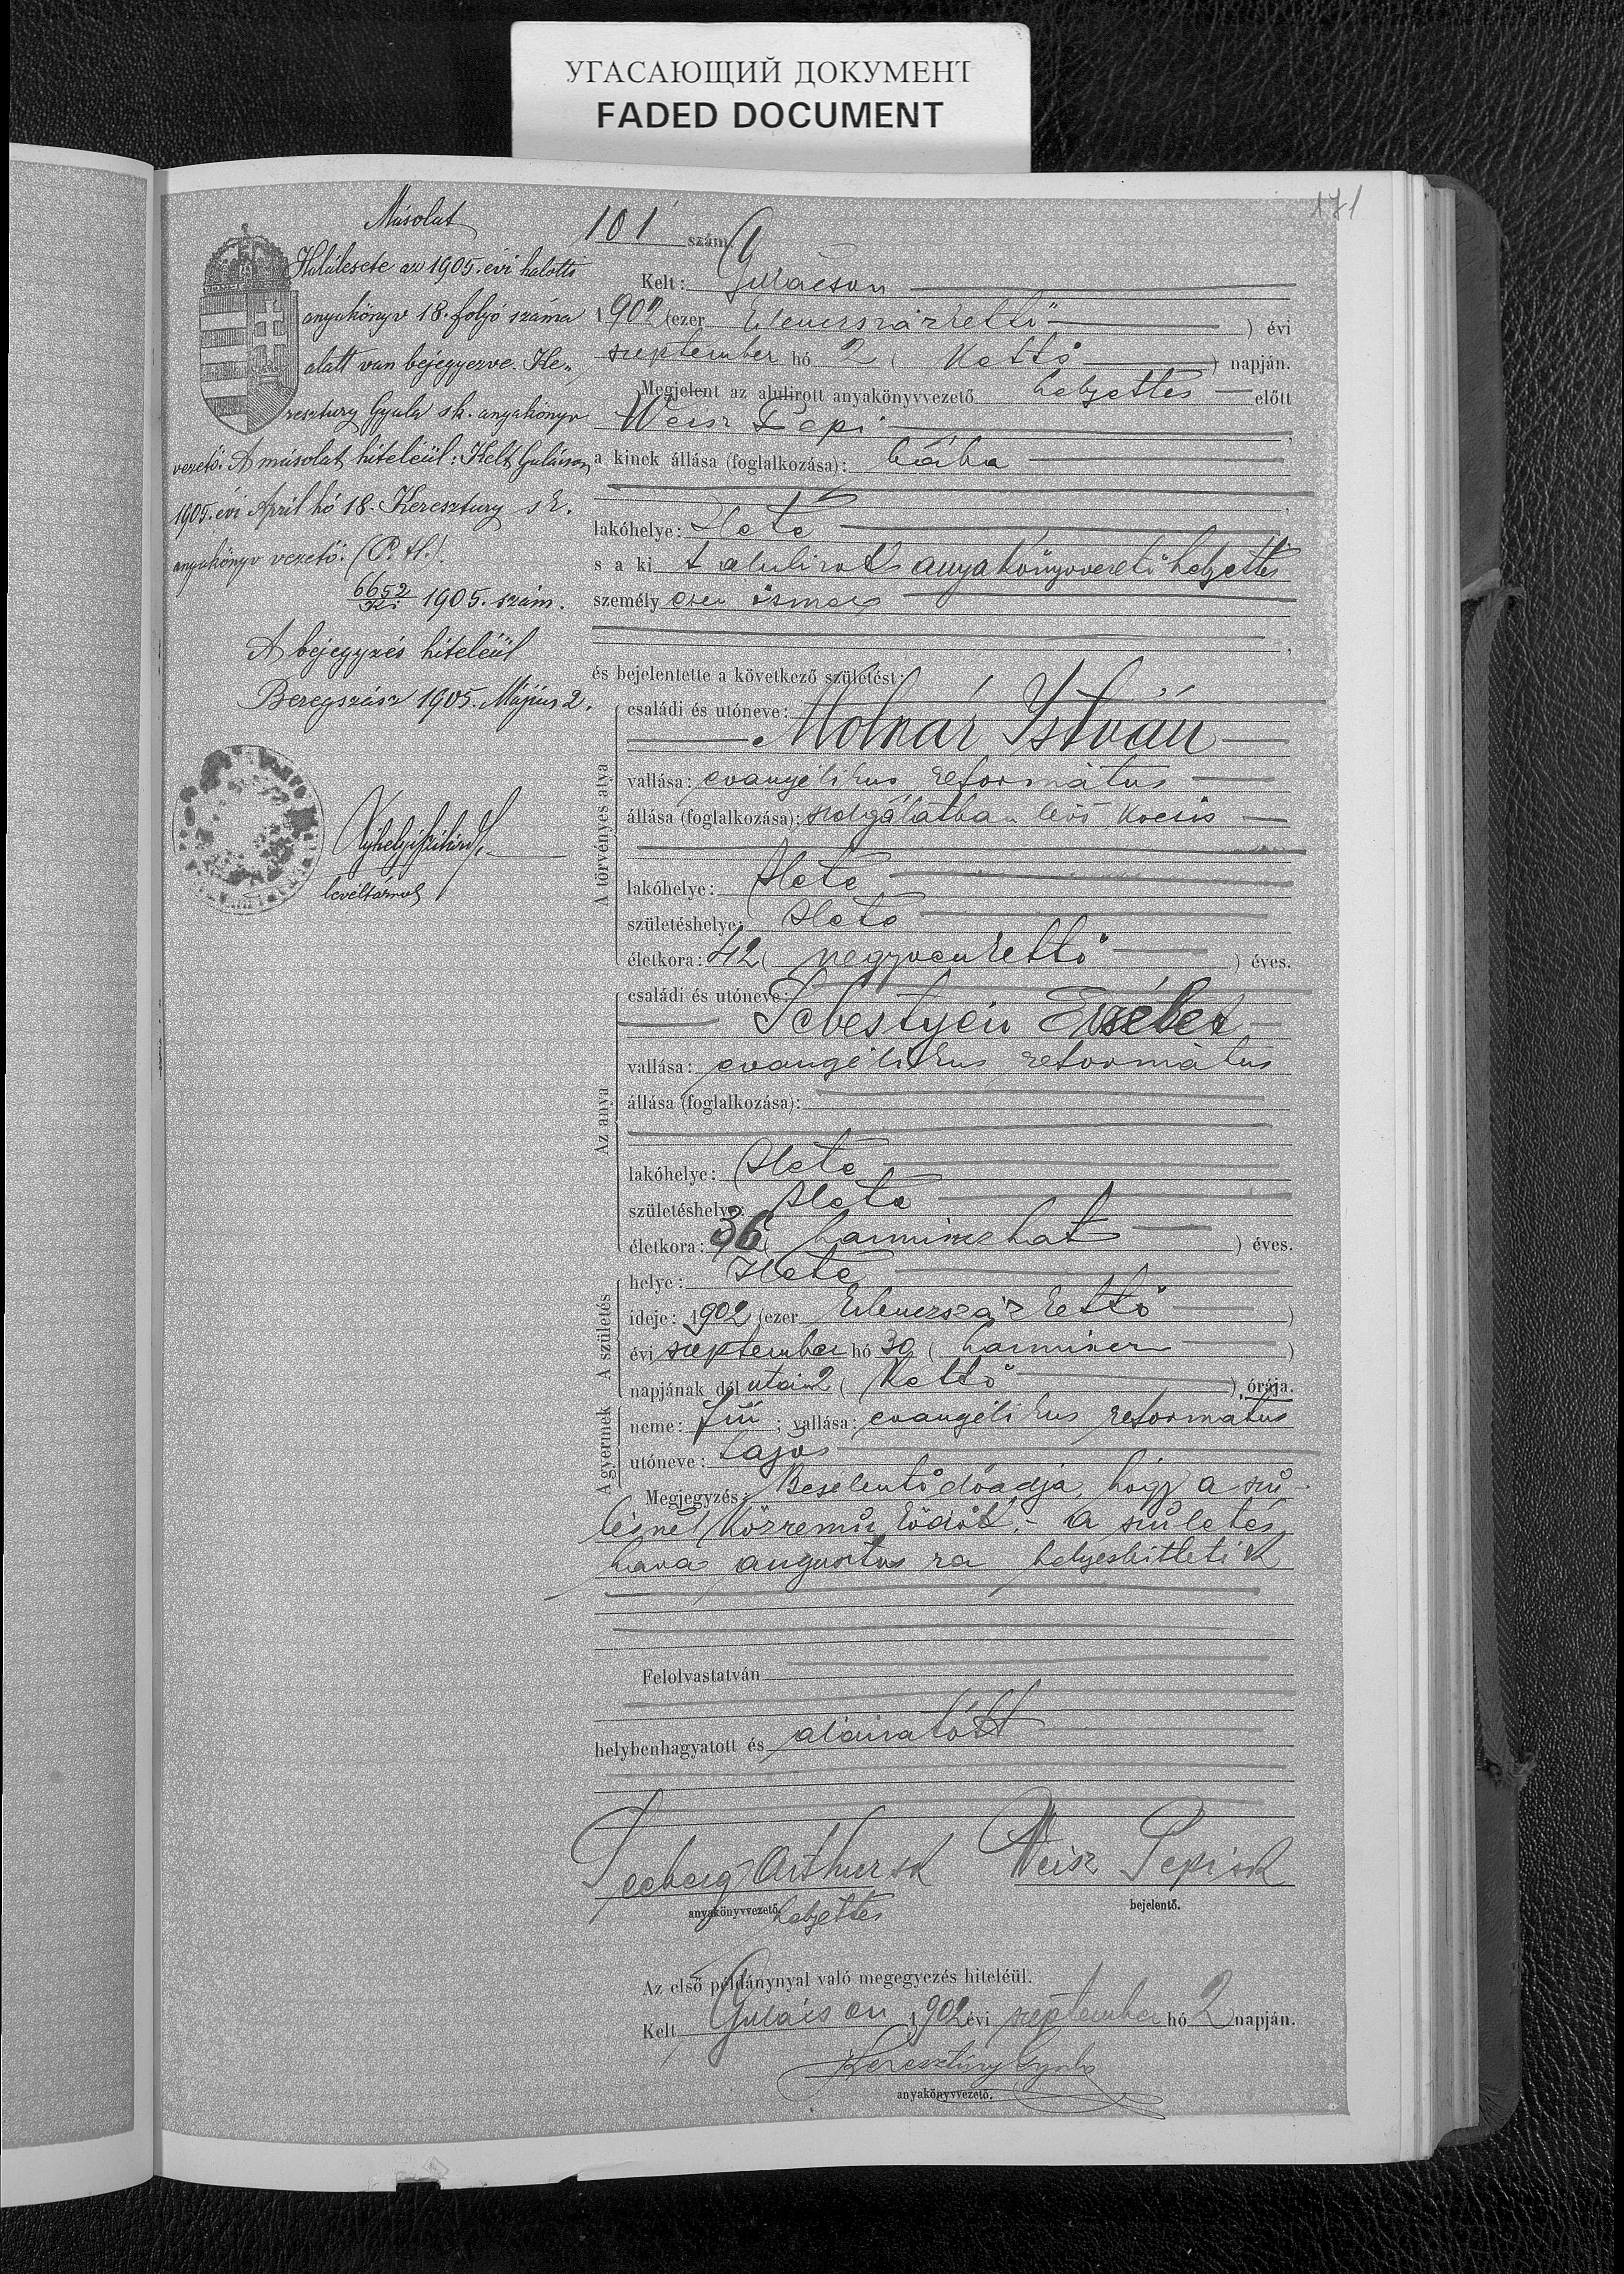 УГАСАЮЩИЙ ДОКУМЕНТ
FADED DOCUMENT
171
Másolat
Halálesete az 1905. évi halotti
anyakönyv 18. folyó száma
alatt van bejegyezve. Ke-
resztury Gyula sk. anyakönyv
vezető. A másolat hiteléül: Kelt Gulácson
1905. évi April hó 18. Keresztury sk.
anyakönyv vezető. (P. H.)
6652/Ki 1905. szám.
A bejegyzés hiteléül
Beregszász 1905. Május 2.
levéltárnok
101 szám.
Kelt: Gulácson
1902 (ezer kilencszázkettő) évi
szeptember hó 2 (Kettő) napján.
Megjelent az alulirott anyakönyvvezető helyettes előtt
Weisz Pepi,
a kinek állása (foglalkozása): bába
lakóhelye: Hete
s a ki t alulirott anyakönyvvezető helyettes
személyesen ismer
és bejelentette a következő születést:
A törvényes atya
családi és utóneve:
Molnár István
vallása: evangélikus református
állása (foglalkozása): szolgálatban levő kocsis
lakóhelye: Hete
születéshelye: Hete
életkora: 42 (negyvenkettő) éves.
Az anya
családi és utóneve:
Sebestyén Erzsébet
vallása: evangélikus református
állása (foglalkozása):
lakóhelye: Hete
születéshelye: Hete
életkora: 36 (harminchat) éves.
A születés
helye: Hete
ideje: 1902 (ezer kilencszázkettő)
évi szeptember hó 30 (harmincz)
napjának dél után 2 (Kettő) órája.
A gyermek
neme: fiú; vallása: evangélikus református
utóneve: Lajos
Megjegyzés: Bejelentő előadja, hogy a szü-
lésnél közreműködött. - A születés
hava augusztus ra helyesbittetik
Felolvastatván
helybenhagyatott és aláiratott
Arthur sk Weisz Pepi sk
anyakönyvvezető helyettes bejelentő.
Az első példánynyal való megegyezés hiteléül.
Kelt Gulácson 1902 évi szeptember hó 2 napján.
Keresztúry Gyula
anyakönyvvezető.